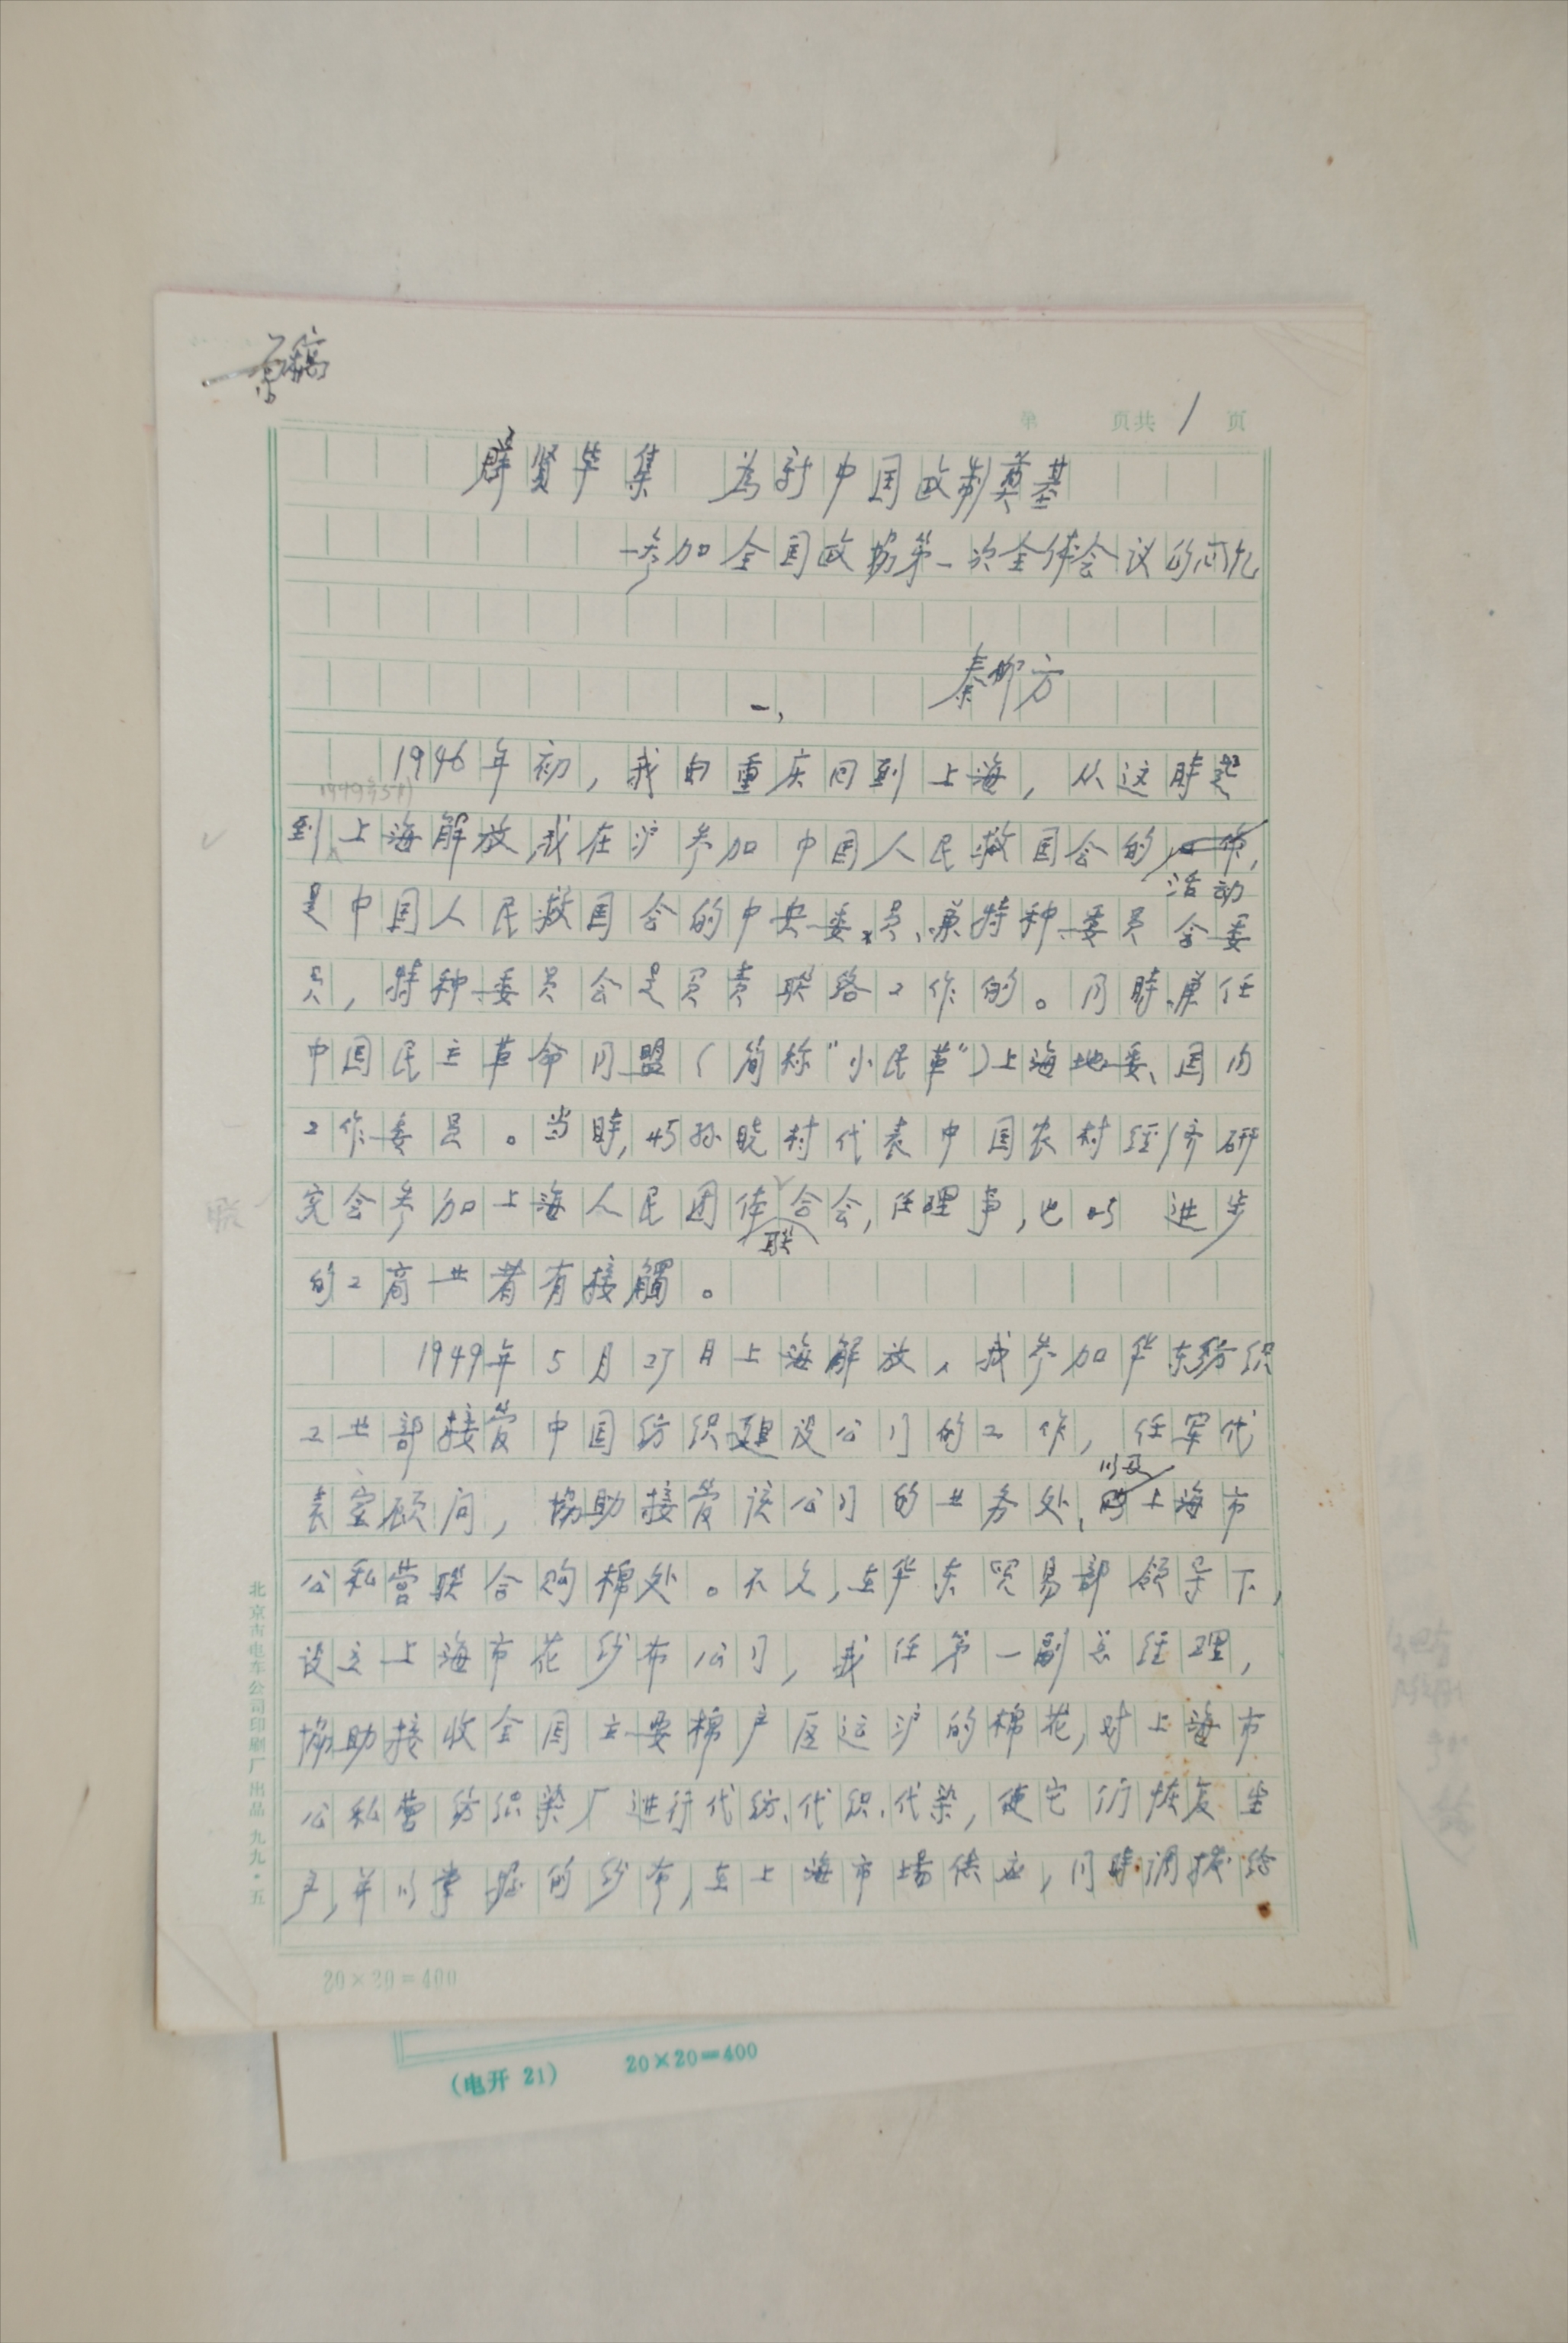 原稿
第 页共 1 页
群贤毕集 为新中国政制奠基
—参加全国政协第一次全体会议的回忆
秦柳方
一、
1946年初，我由重庆回到上海，从这時起
1949年5月
到上海解放，我在沪参加中国人民救国会的工作，
活动
是中国人民救国会的中央委员、兼特种委员会委
员，特种委员会是负责联络工作的。同時兼任
中国民主革命同盟（简称“小民革”）上海地委、国内
工作委员。当時，与孙晓村代表中国农村经济研
究会参加上海人民团体合会，任理事，也与进步
联
的工商业者有接觸。
1949年5月27日上海解放，我参加华东纺织
工业部接管中国纺织建设公司的工作，任军代
以及
表室顾问，协助接管该公司的业务处、上海市
公私营联合购棉处。不久，在华东贸易部领导下，
设立上海市花纱布公司，我任第一副总经理，
协助接收全国主要棉产区运沪的棉花，对上海市
公私营纺织染厂进行代纺、代织、代染，使它们恢复生
产，并以掌握的纱布，在上海市場供应，同時调拨给
北京市电车公司印刷厂出品 九九·五
20×20=400
（电开 21） 20×20=400